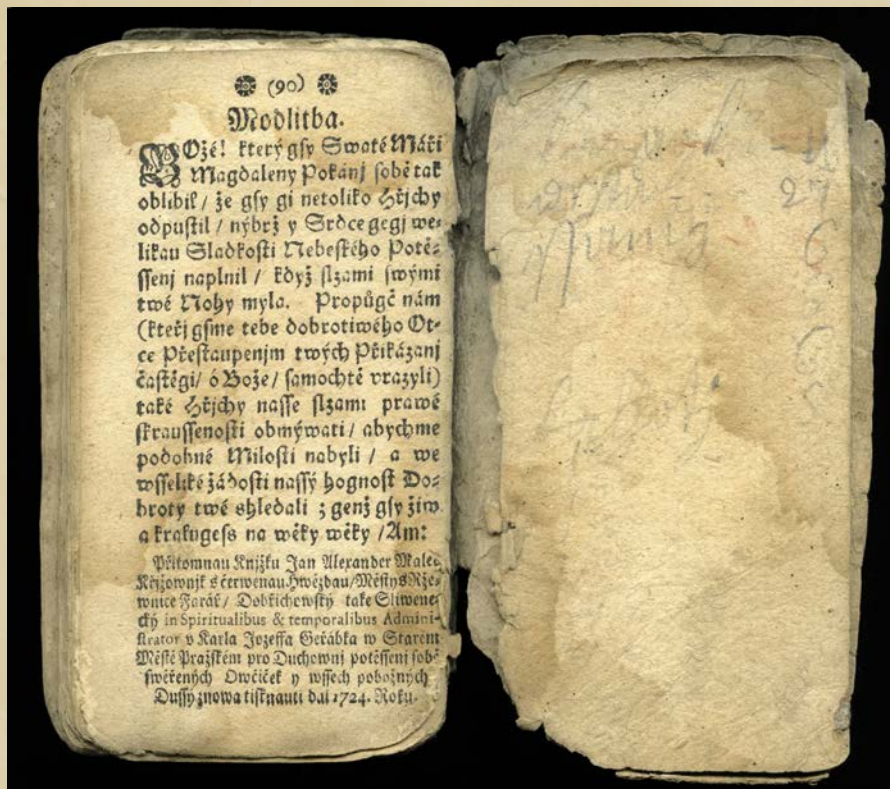 (90)
Modlitba.
BOžé! který gsy Swaté Máří
Magdaleny Pokánj sobě tak
oblibil / že gsy gi netoliko Hřjchy
odpustil / nýbrž y Srdce gegj we-
likau Sladkosti Nebeského Potě-
ssenj naplnil / když slzami swými
twé Nohy myla. Propůgč nám
(kteřj gsme tebe dobrotiwého Ot-
ce Přestaupenjm twých Přikázanj
častěgi / ó Bože / samochtě vrazyli)
také Hřjchy nasse slzami prawé
skraussenosti obmýwati / abychme
podobné Milosti nabyli / a we
wsseliké žádosti nassý hognost Do-
broty twé shledali ; genž gsy žiw
a kralugess na wěky wěky / Am:
Přjtomnau Knjžku Jan Alexander Malec
Křjžownjk s čerwenau Hwězdau / Městys Rže-
wnice Farář / Dobřichowský také Sliwene-
cký in Spiritualibus & temporalibus Admini-
strator v Karla Jozeffa Geřábka w Starém
Městě Pražském pro Duchownj potěssenj sobě
swěřených Owčiček y wssech pobožných
Dussý znowa tisknauti dal 1724. Roku.
27
6
6